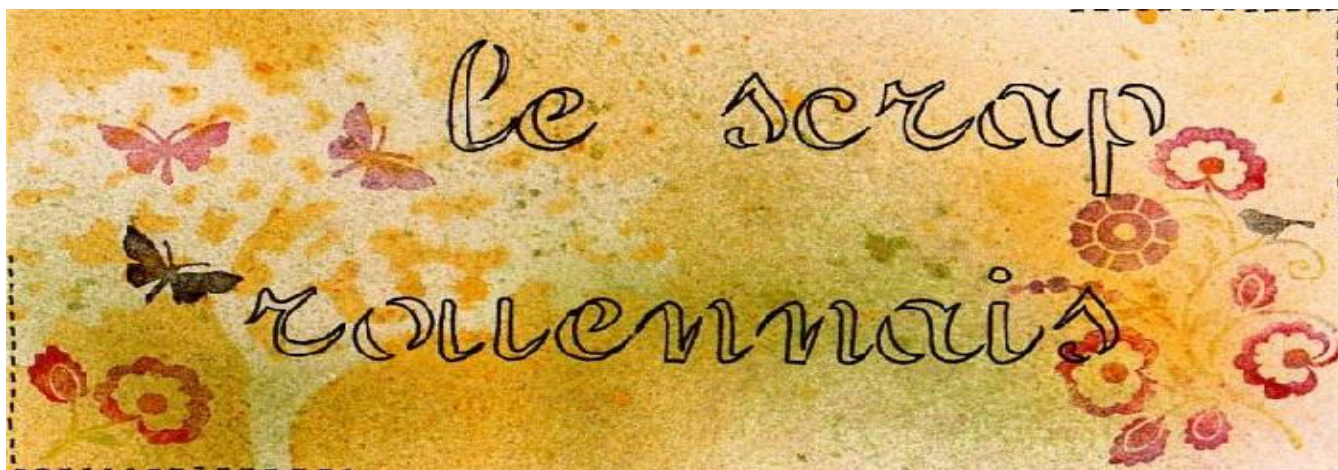 le scrap
rouennais